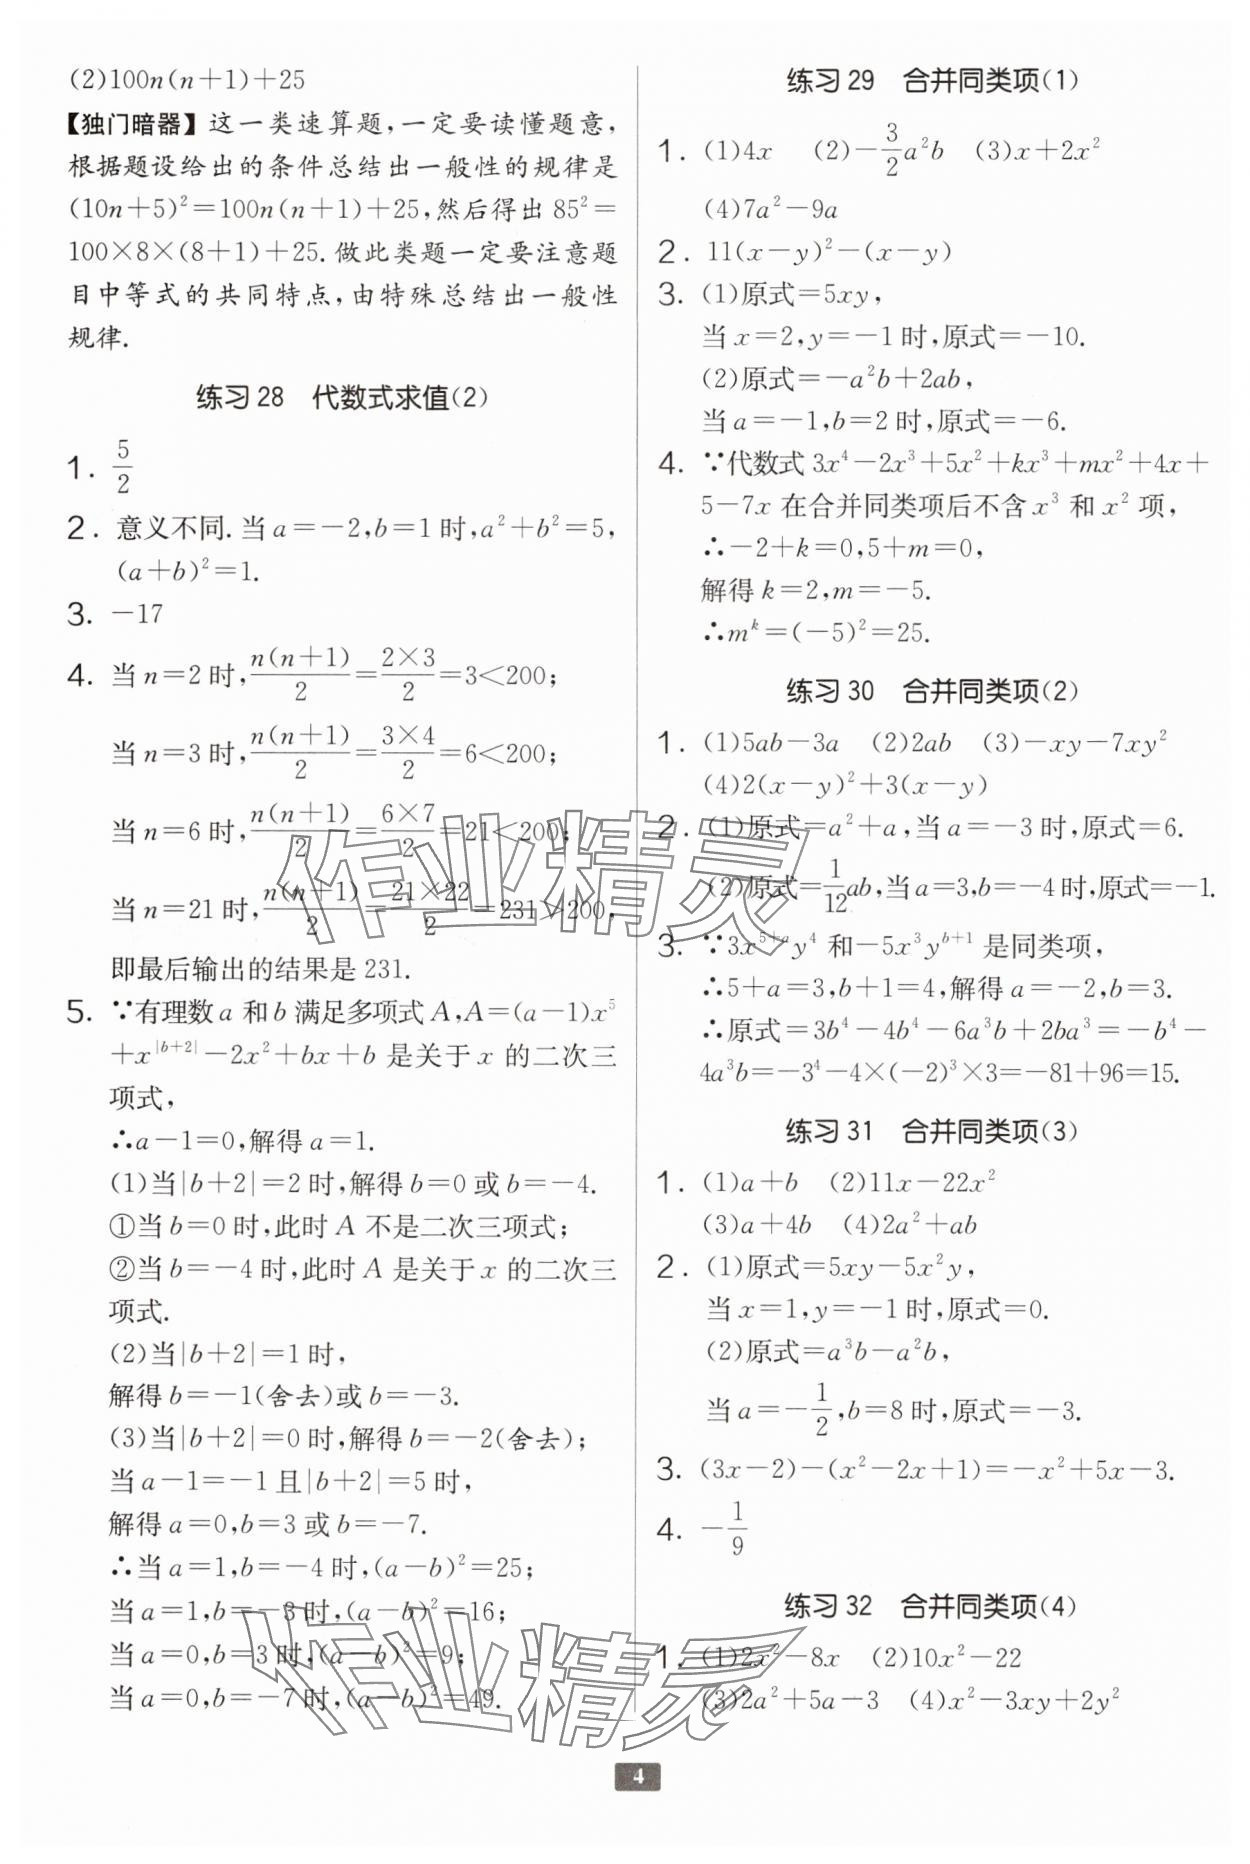 (2)100n(n+1)+25
【独门暗器】这一类速算题,一定要读懂题意,
根据题设给出的条件总结出一般性的规律是
(10n+5)²=100n(n+1)+25,然后得出 85²=
100×8×(8+1)+25. 做此类题一定要注意题
目中等式的共同特点,由特殊总结出一般性
规律.
练习 28 代数式求值(2)
1. 5/2
2. 意义不同. 当 a=-2,b=1 时,a²+b²=5,
(a+b)²=1.
3. -17
4. 当 n=2 时,n(n+1)/2=2×3/2=3<200;
当 n=3 时,n(n+1)/2=3×4/2=6<200;
当 n=6 时,n(n+1)/2=6×7/2=21<200;
当 n=21 时,n(n+1)/2=21×22/2=231>200,
即最后输出的结果是 231.
5. ∵有理数 a 和 b 满足多项式 A,A=(a-1)x⁵
+x^|b+2|-2x²+bx+b 是关于 x 的二次三
项式,
∴a-1=0,解得 a=1.
(1)当|b+2|=2 时,解得 b=0 或 b=-4.
①当 b=0 时,此时 A 不是二次三项式;
②当 b=-4 时,此时 A 是关于 x 的二次三
项式.
(2)当|b+2|=1 时,
解得 b=-1(舍去)或 b=-3.
(3)当|b+2|=0 时,解得 b=-2(舍去);
当 a-1=-1 且|b+2|=5 时,
解得 a=0,b=3 或 b=-7.
∴当 a=1,b=-4 时,(a-b)²=25;
当 a=1,b=-3 时,(a-b)²=16;
当 a=0,b=3 时,(a-b)²=9;
当 a=0,b=-7 时,(a-b)²=49.
练习 29 合并同类项(1)
1. (1)4x (2)-3/2a²b (3)x+2x²
(4)7a²-9a
2. 11(x-y)²-(x-y)
3. (1)原式=5xy,
当 x=2,y=-1 时,原式=-10.
(2)原式=-a²b+2ab,
当 a=-1,b=2 时,原式=-6.
4. ∵代数式 3x⁴-2x³+5x²+kx³+mx²+4x+
5-7x 在合并同类项后不含 x³ 和 x² 项,
∴-2+k=0,5+m=0,
解得 k=2,m=-5.
∴m^k=(-5)²=25.
练习 30 合并同类项(2)
1. (1)5ab-3a (2)2ab (3)-xy-7xy²
(4)2(x-y)²+3(x-y)
2. (1)原式=a²+a,当 a=-3 时,原式=6.
(2)原式=1/12ab,当 a=3,b=-4 时,原式=-1.
3. ∵3x^(5+a)y⁴ 和-5x³y^(b+1) 是同类项,
∴5+a=3,b+1=4,解得 a=-2,b=3.
∴原式=3b⁴-4b⁴-6a³b+2ba³=-b⁴-
4a³b=-3⁴-4×(-2)³×3=-81+96=15.
练习 31 合并同类项(3)
1. (1)a+b (2)11x-22x²
(3)a+4b (4)2a²+ab
2. (1)原式=5xy-5x²y,
当 x=1,y=-1 时,原式=0.
(2)原式=a³b-a²b,
当 a=-1/2,b=8 时,原式=-3.
3. (3x-2)-(x²-2x+1)=-x²+5x-3.
4. -1/9
练习 32 合并同类项(4)
1. (1)2x²-8x (2)10x²-22
(3)2a²+5a-3 (4)x²-3xy+2y²
4
作业精灵
作业精灵